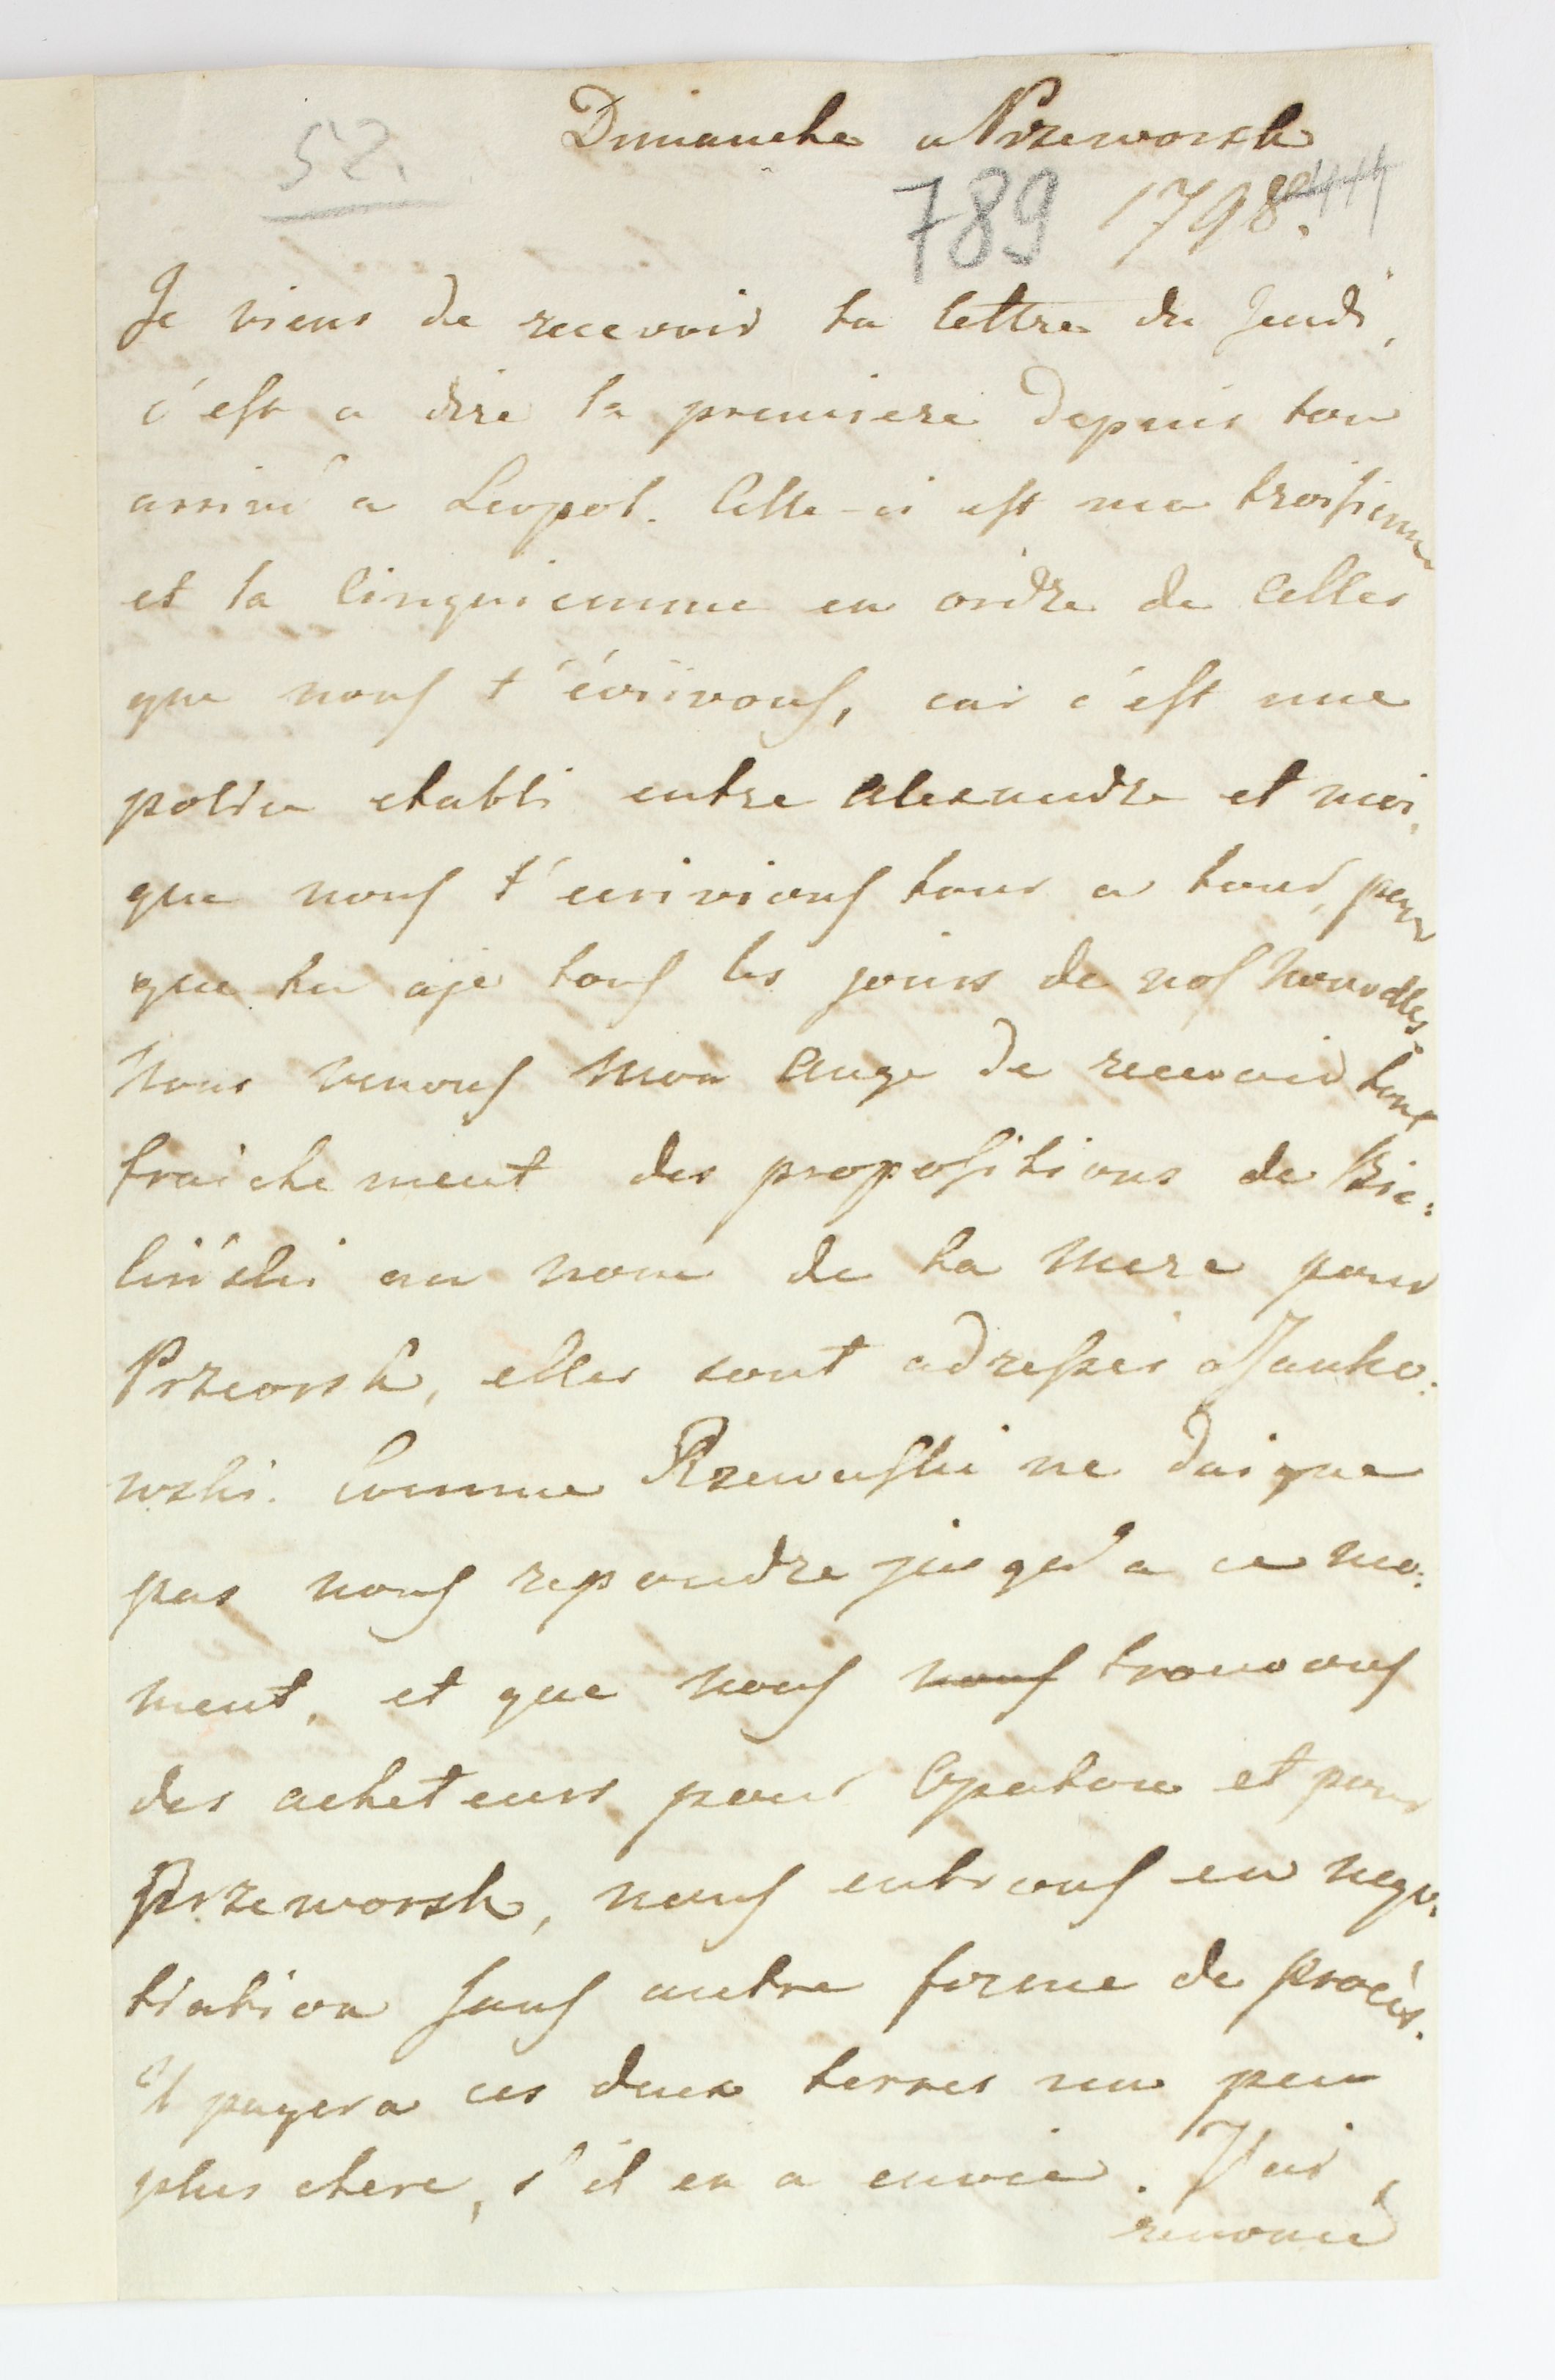 52.
Dimanche a Przeworsk
789 1798.
Je viens de recevoir ta lettre du Jeudi,
c'est a dire la premiere depuis ton
arrivé a Leopol. Celle-ci est ma troisieme
et la Cinquiemme en ordre de Celles
que nous t'écrivons, car c'est une
police etabli entre Alexandre et moi,
que nous t'ecrivions tour a tour, pour
que tu aje tous les jours de nos nouvelles.
Nous venons mon Ange de recevoir tout
fraichement des propositions de Bie:
liński au nom de ta Mere pour
Przeorsk, elles sont adressés a Janko:
wski. Comme Rzewuski ne daigne
pas nous repondre jusqu'a ce mo:
ment, et que nous nous trouvons
des acheteurs pour Opatow et pour
Przeworsk, nous entrons en nego:
tiation sans autre forme de procès.
Il payera ces deux terres un peu
plus chere, s'il en a envie. J'ai
renoncé